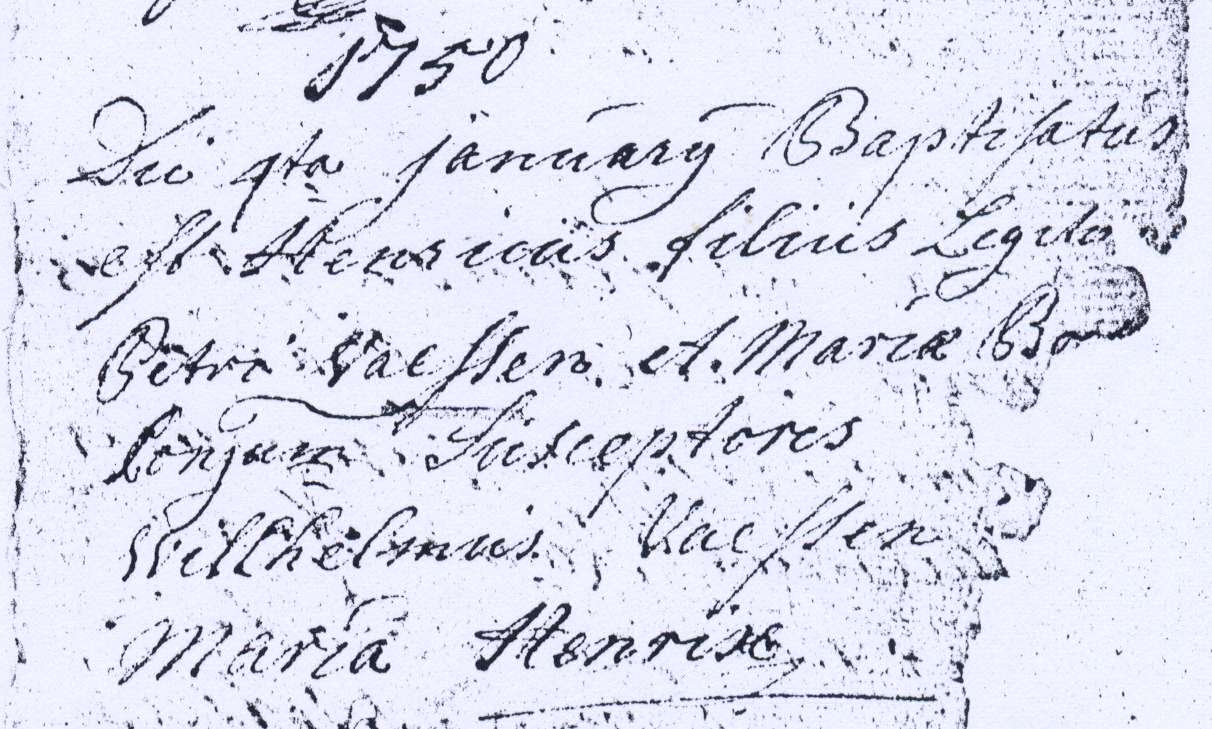 1750
Die 4ta january Baptisatus
est Henricus filius Legit
Petri Vaessen et Mariæ Bo
Conjum Susceptores
Wilthelmus Vaessen
Maria Henrix